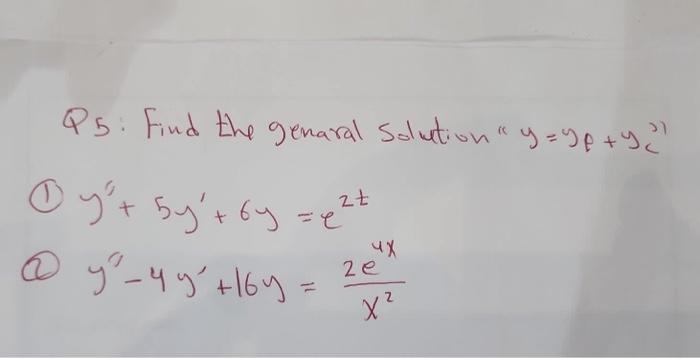 Q5: Find the genaral Solution " y = yp + yc "
① y'' + 5y' + 6y = e^2t
② y'' - 4y' + 16y = 2e^4x / x^2